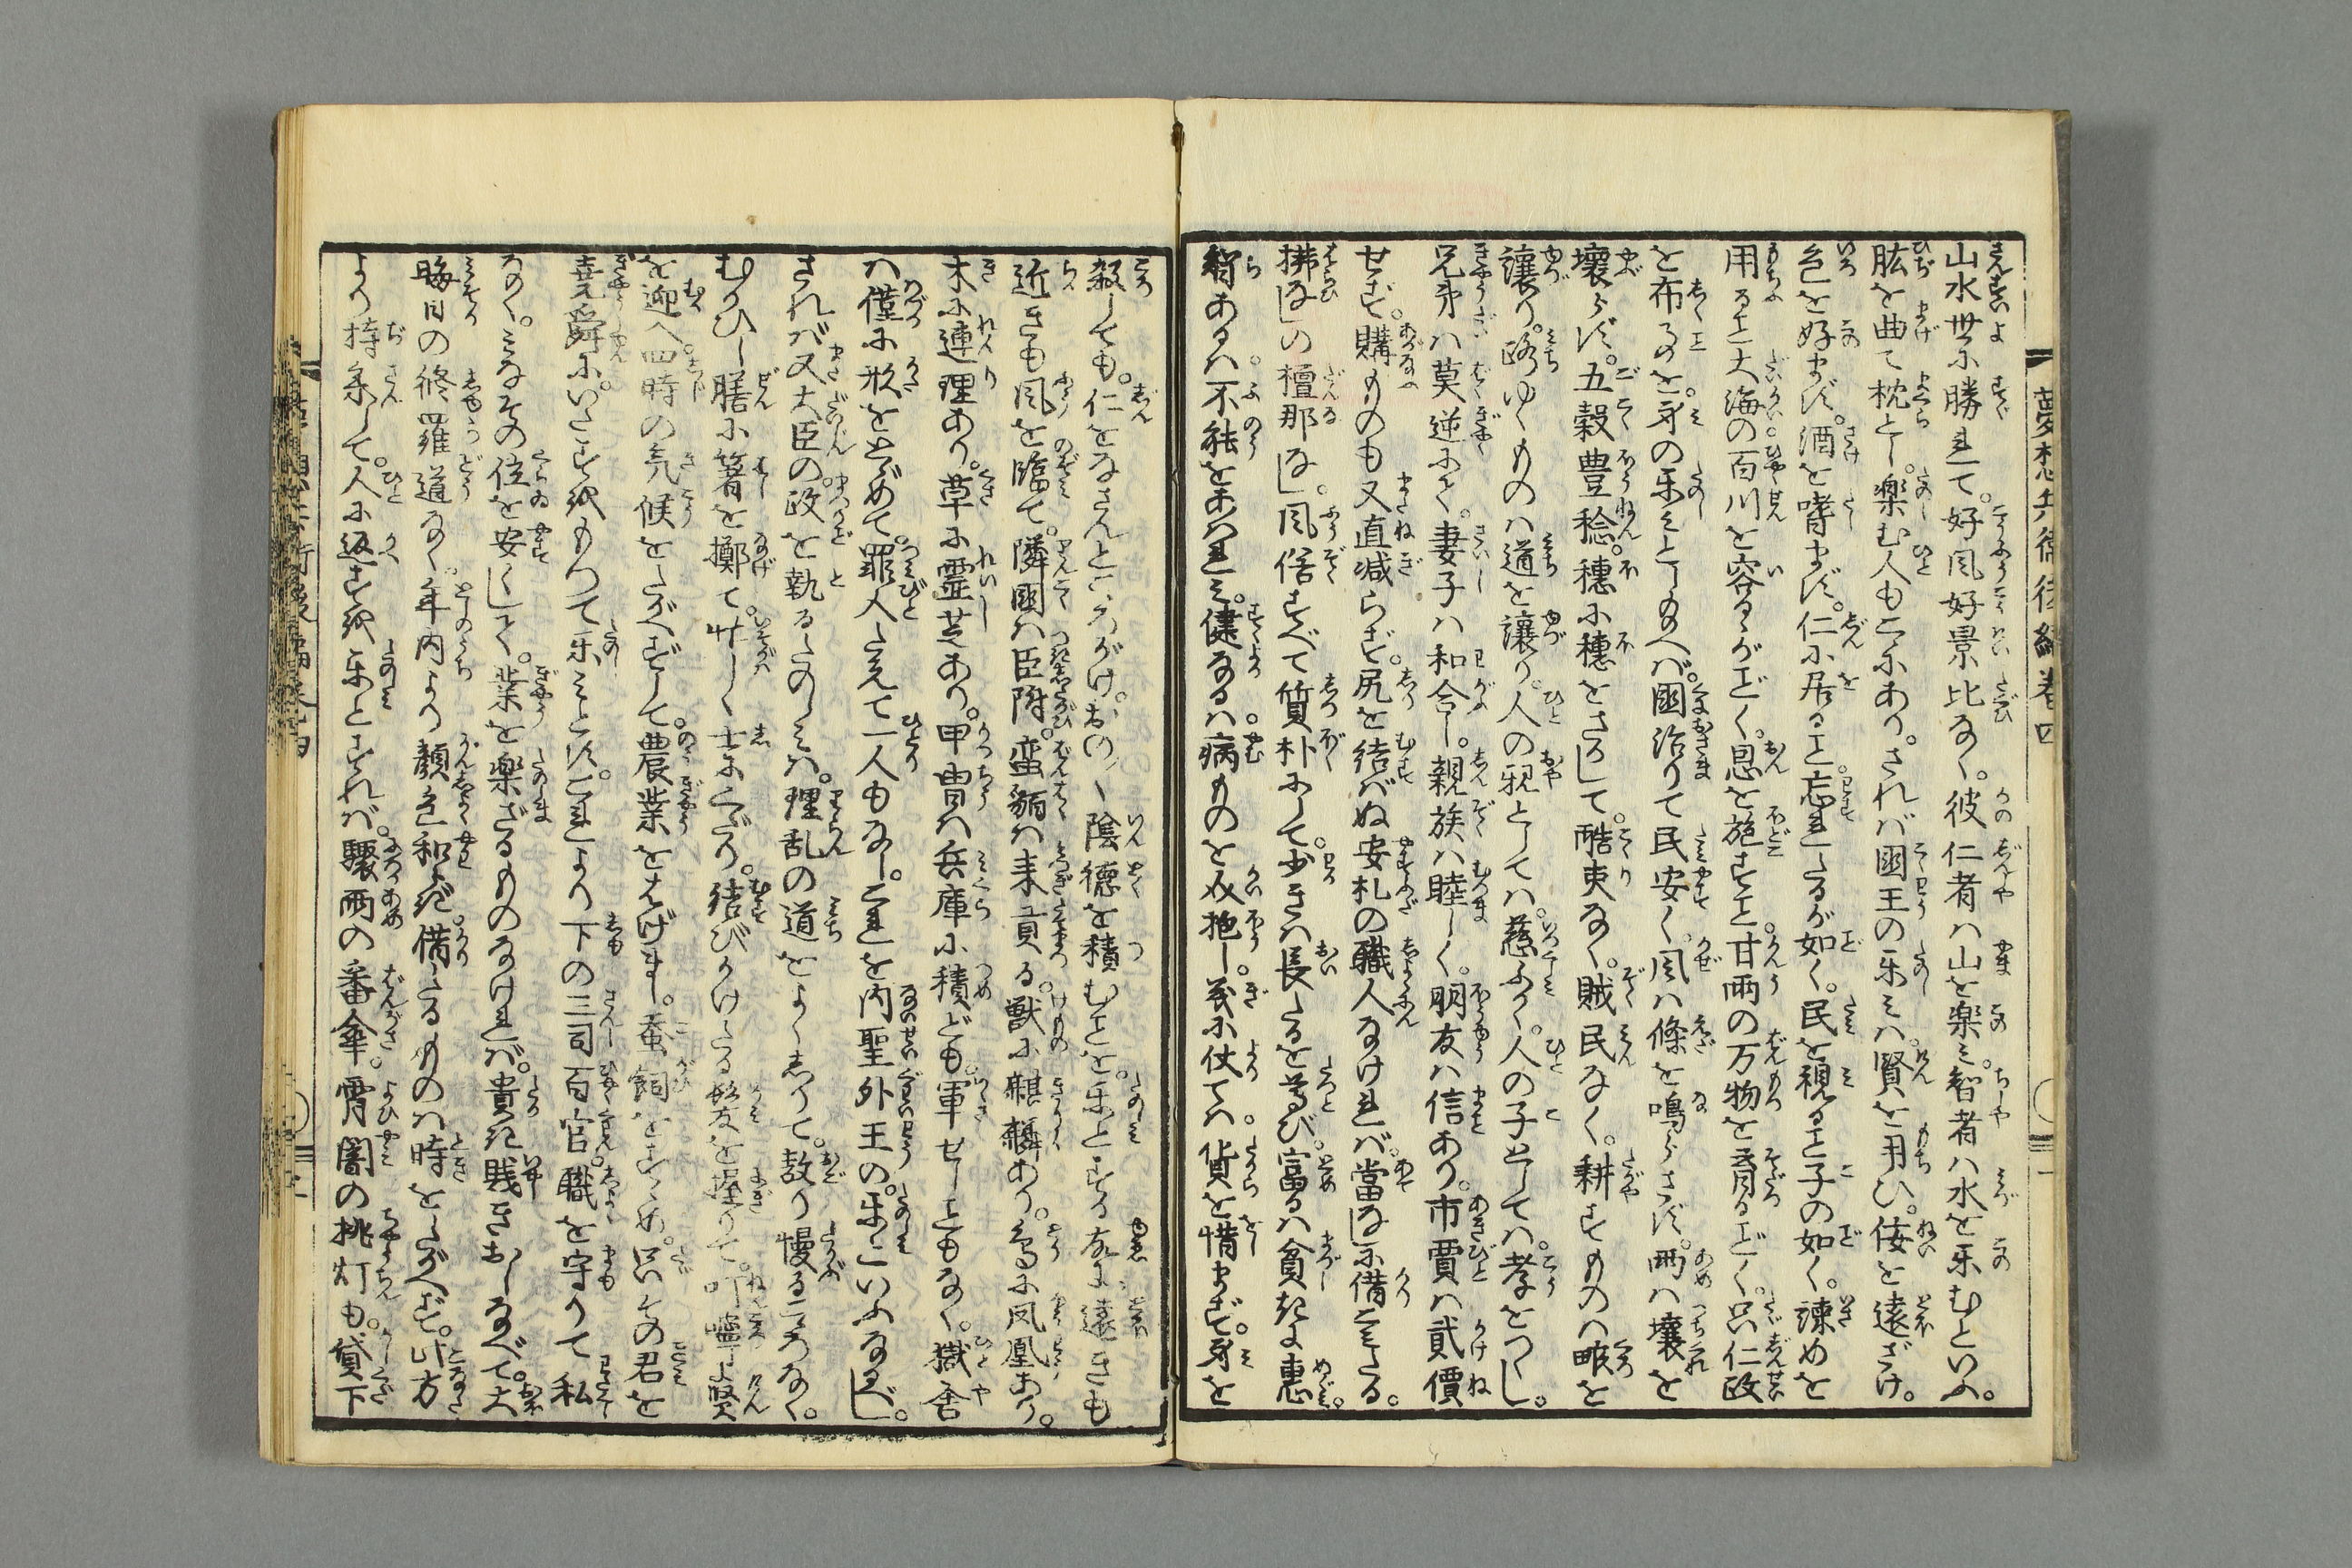 夢想兵衛後編巻四
山水世に勝れて。好風好景比なく。彼仁者は山を楽み。智者は水を楽むといふ。
肱を曲て枕とし。楽む人もこゝにあり。されば國王の楽みは。賢を用ひ。佞を遠ざけ。
色を好まず。酒を嗜まず。仁に居ること忘れたるが如く。民を視ること子の如く。諌めを
用ること大海の百川を容るゝがごとく。恩を施すこと。甘雨の万物を育るごとく。只仁政
を布るのを。身の楽みとし給へば。國治りて民安く。風は條を鳴らさず。雨は壌を
壊らず。五穀豊稔。穂に穂をさして。酷吏なく。賊民なく。耕すものは畔を
譲り。路ゆくものは道を譲り。人の親としては。慈ふかく。人の子としては。孝をつくし。
兄弟は莫逆にて。妻子は和合し。親族は睦しく。朋友は信あり。市賈は貳價
せず。購ものも又直減らず。尻を結ばぬ安札の職人なければ。當なしに借こみたる。
拂なしの檀那なし。風俗すべて質朴にして。少きは長たるを尊び。富るは貧きに恵。
あるは。不能をあはれみ。健なるは。病ものを介抱し。義に仗ては。貨を惜まず。身を
殺しても。仁をなさんところがけ。おの〳〵陰徳を積むことを。楽とする故に。遠きも
近きも風を臨て。隣國は臣附。蛮貊は来貢る。獣に麒麟あり。鳥に凤凰あり。
木に連理あり。草に霊芝あり。甲冑は兵庫に積ども。軍せしこともなく。獄舎
は僅に形をとゞめて。罪人たえて一人もなし。これを内聖外王の。楽といふなるべし。
されば又大臣の。政を執るたのしみは。理乱の道をよくしりて。敖り慢るこゝろなく。
むかひし膳に箸を擲て。忙しく士にくだり。結びかけたる髪を握りて。叮嚀に賢
を迎へ。四時の気候をたがへずして。農業をはげまし。蚕飼をすゝめ。只その君を
堯舜に。いたすをもつて楽みとす。これより下の三司百官。職を守りて私
なく。みなその位を安くして。業を楽ざるものなければ。貴き賎きおしなべて。大
晦日の修羅道なく。年内より顔色和ぎ。借たるものは時をたがへず。此方
より持参して。人に返すを楽とすれば。驟雨の番傘。宵闇の挑灯も。貸下